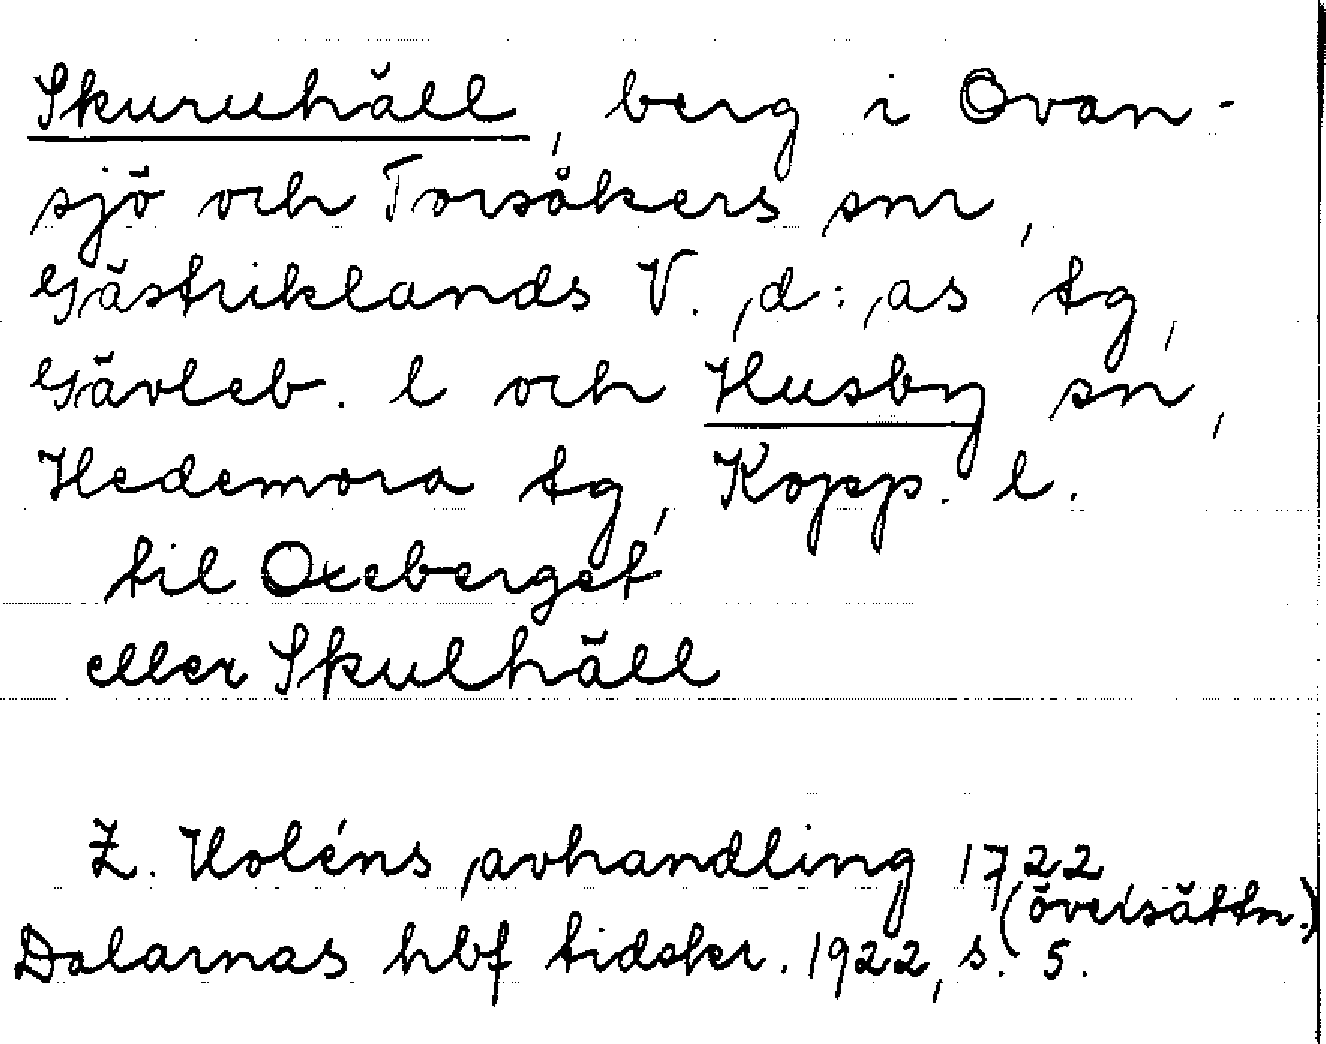 Skuruhäll, berg i Ovan-
sjö och Torsåkers snr,
Gästriklands V. d:as tg,
Gävleb. l och Husby sn,
Hedemora tg, Kopp. l.
til Oxeberget
eller Skulhäll
Z. Holéns avhandling 1722
(översättn.)
Dalarnas hbf tidskr. 1922, s. 5.